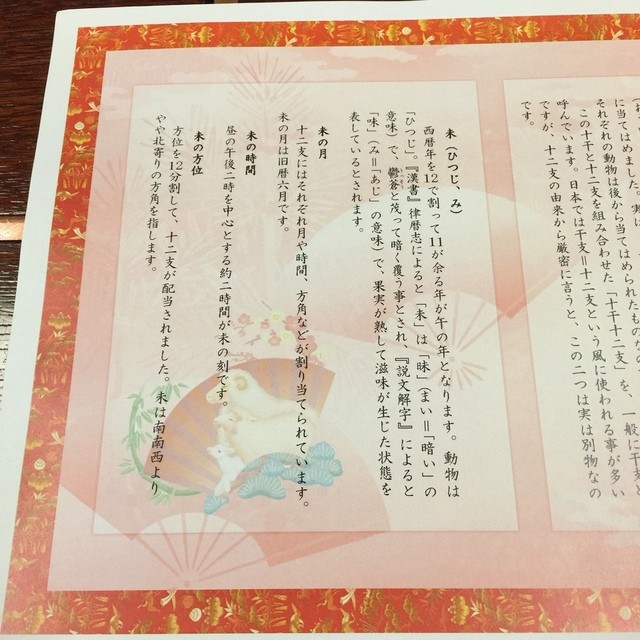 に当てはめました。実は
それぞれの動物は後から当てはめられたもの
この十干と十二支を組み合わせた「十干十二支」を、一般に干支と
呼んでいます。日本では干支＝十二支という風に使われる事が多い
ですが、十二支の由来から厳密に言うと、この二つは実は別物なの
です。
未（ひつじ、み）
西暦年を12で割って11が余る年が午の年となります。動物は
「ひつじ」。『漢書』律暦志によると「未」は「昧」（まい＝「暗い」の
意味）で、鬱蒼と茂って暗く覆う事とされ、『説文解字』によると
「味」（み＝「あじ」の意味）で、果実が熟して滋味が生じた状態を
表しているとされます。
未の月
十二支にはそれぞれ月や時間、方角などが割り当てられています。
未の月は旧暦六月です。
未の時間
昼の午後二時を中心とする約二時間が未の刻です。
未の方位
方位を12分割して、十二支が配当されました。未は南南西より
やや北寄りの方角を指します。